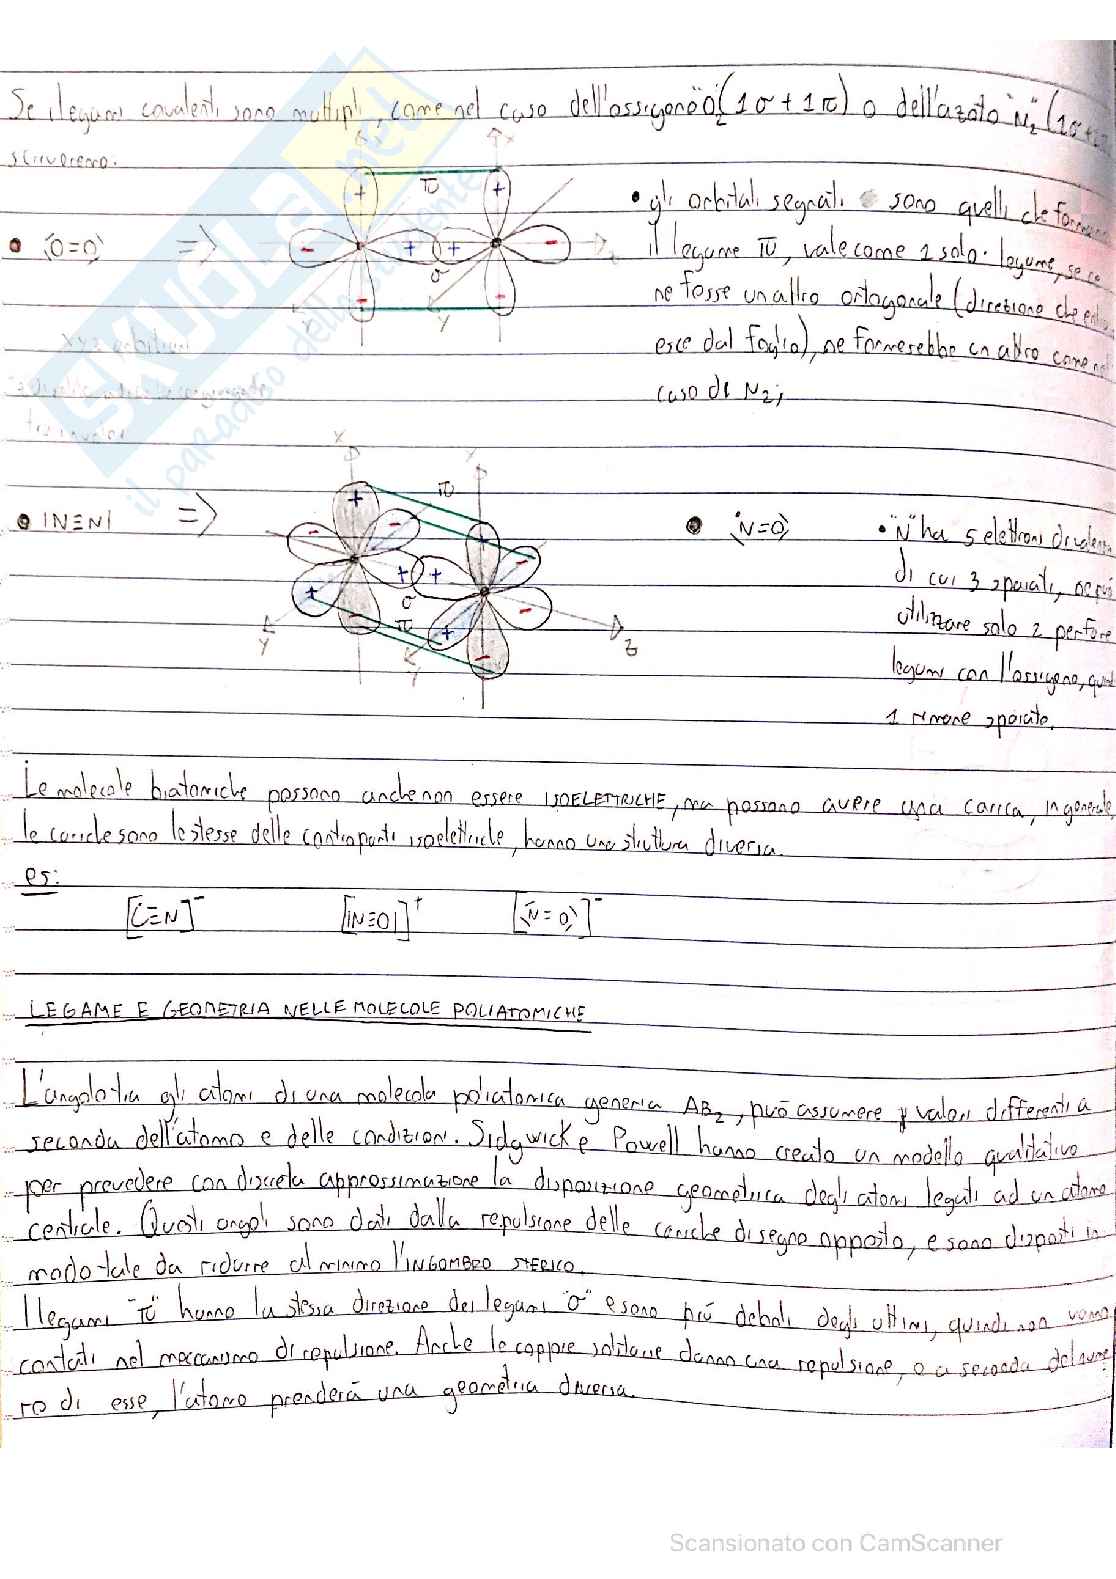 Se i legami covalenti sono multipli, come nel caso dell'ossigeno "O₂" (1σ + 1π) o dell'azoto "N₂" (1σ +
scriveremo.
• ⟨O=O⟩ =>
+ + π
- + + -
σ
- -
X Y Y
• gli orbitali segnati sono quelli che formano
il legame π, vale come 1 solo legame, se ce
ne fosse un altro ortogonale (direzione che entra
esce dal foglio), ne formerebbe un altro come nel
caso di N₂;
xyz
triangolar
• |N≡N| =>
X X π
+ - - +
+ + σ
π - + - -
Y Y Z
• ⟨N=O⟩
• "N" ha 5 elettroni di valenza
di cui 3 spaiati, ne può
utilizzare solo 2 per fare
legami con l'ossigeno, quindi
1 rimane spaiato.
Le molecole biatomiche possono anche non essere ISOELETTRICHE, ma possono avere una carica, in generale,
le cariche sono le stesse delle controparti isoelettriche, hanno una struttura diversa.
es:
[C≡N]⁻ [|N≡O|]⁺ [⟨N=O⟩]⁻
LEGAME E GEOMETRIA NELLE MOLECOLE POLIATOMICHE
L'angolo tra gli atomi di una molecola poliatomica generica AB₂, può assumere valori differenti a
seconda dell'atomo e delle condizioni. Sidgwick e Powell hanno creato un modello qualitativo
per prevedere con discreta approssimazione la disposizione geometrica degli atomi legati ad un atomo
centrale. Questi angoli sono dati dalla repulsione delle cariche di segno opposto, e sono disposti in
modo tale da ridurre al minimo l'INGOMBRO STERICO.
I legami "π" hanno la stessa direzione dei legami "σ" e sono più deboli degli ultimi, quindi non vanno
contati nel meccanismo di repulsione. Anche le coppie solitarie danno una repulsione, e a seconda del nume
ro di esse, l'atomo prenderà una geometria diversa.
SKUOLA.net
il paradiso dello studente
Scansionato con CamScanner